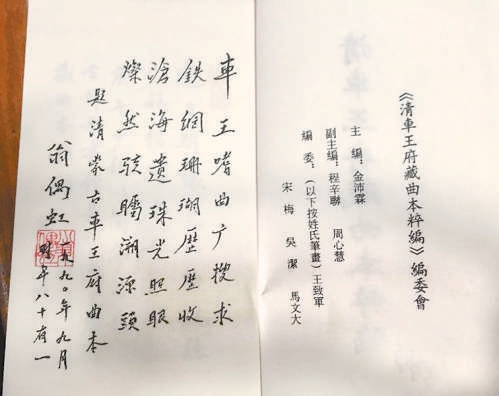 《清車王府藏曲本粹編》編委會
主編：金沛霖
副主編：程辛聯　周心慧
編委：（以下按姓氏筆畫）王致軍
宋梅　吳潔　馬文大
車王嗜曲广搜求
鉄網珊瑚歷歷收
滄海遺珠光照眼
燦然駭矚溯源頭
題清蒙古車王府曲本
翁偶虹
一九九〇年九月
時年八十有一